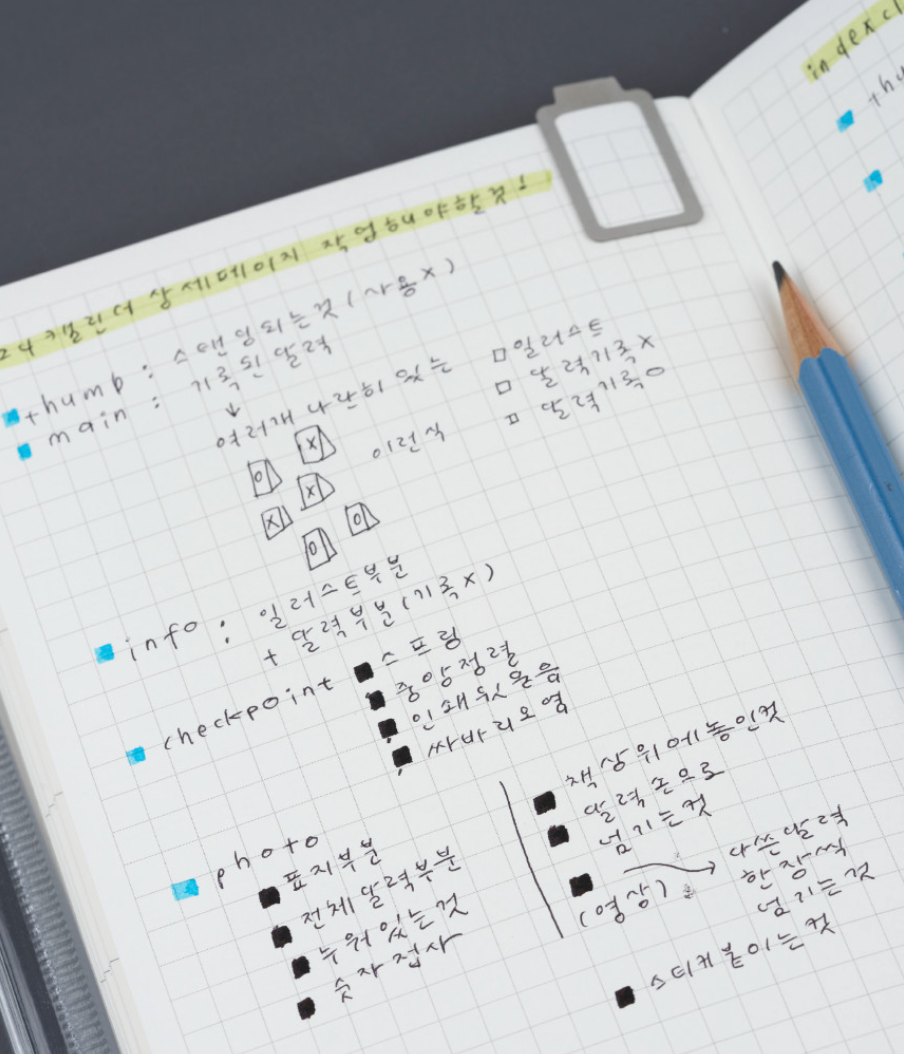 24 캘린더 상세페이지 작업해야할것!
thumb : 스탠딩되는것(사용x)
main : 기록된 달력
↓
여러개 나란히 있는
□ 일러스트
□ 달력기록x
□ 달력기록o
이런식
o
x
x
x
o
o
info : 일러스트부분
+ 달력부분(기록x)
checkpoint
스프링
중앙정렬
인쇄뒷묻음
싸바리오염
photo
표지부분
전체달력부분
누워있는것
숫자접사
책상위에놓인컷
달력손으로
넘기는컷
(영상)
다쓴달력
한장씩
넘기는것
스티커붙이는컷
index
thu